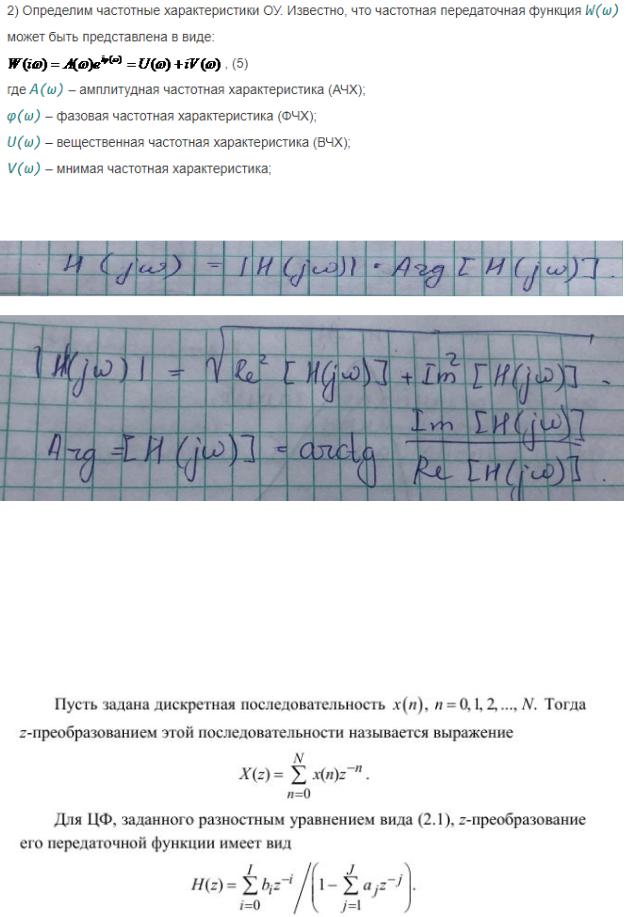 2) Определим частотные характеристики ОУ. Известно, что частотная передаточная функция W(ω)
может быть представлена в виде:
W(iω) = A(ω)e^{iφ(ω)} = U(ω) + iV(ω) , (5)
где A(ω) – амплитудная частотная характеристика (АЧХ);
φ(ω) – фазовая частотная характеристика (ФЧХ);
U(ω) – вещественная частотная характеристика (ВЧХ);
V(ω) – мнимая частотная характеристика;
H (jω) = |H (jω)| · Arg [ H (jω)] .
|H(jω)| = √(Re² [H(jω)] + Im² [H(jω)]) .
Arg =[H (jω)] = arctg Im [H(jω)] / Re [H(jω)] .
Пусть задана дискретная последовательность x(n), n = 0, 1, 2, ..., N. Тогда
z-преобразованием этой последовательности называется выражение
X(z) = ∑_{n=0}^{N} x(n)z^{−n} .
Для ЦФ, заданного разностным уравнением вида (2.1), z-преобразование
его передаточной функции имеет вид
H(z) = ∑_{i=0}^{I} b_i z^{−i} / (1 − ∑_{j=1}^{J} a_j z^{−j}).